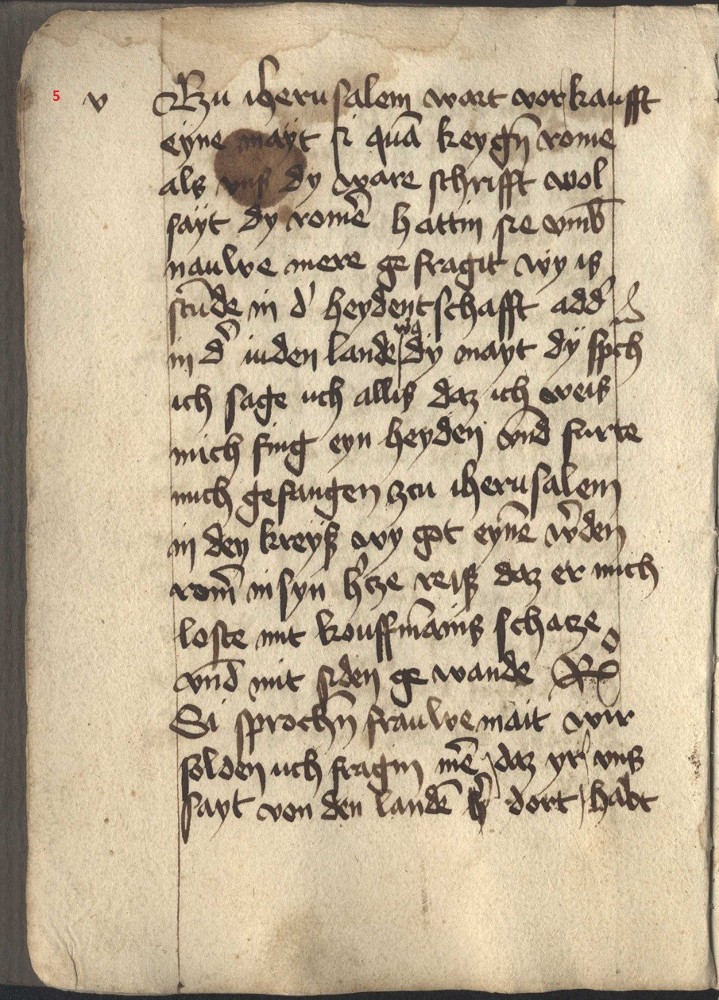 5 v Czu iherusalem wart vorkaufft
eyne mayt si quā keygn̄ rome
als vnß dy ware schrifft wol
sayt dy romē hattin sie vmb̄
nauwe mere gefragit wy is
stūde in d' heydentschafft add'
in d' iuden lande wq dy mayt dy spch
ich sage uch allis daz ich weis
mich fing eyn heyden vnd furte
mich gefangen zcu iherusalem
in den kreyß wy got eyne w'den
rom̄ in syn h'cze reiß daz er mich
loste mit kouffmānis schatze
vnd mit siden gewande Rx
Si sprochn̄ frauwe mait wir
solden uch fragin mē daz yr vns
sayt von den landē h' dort habt